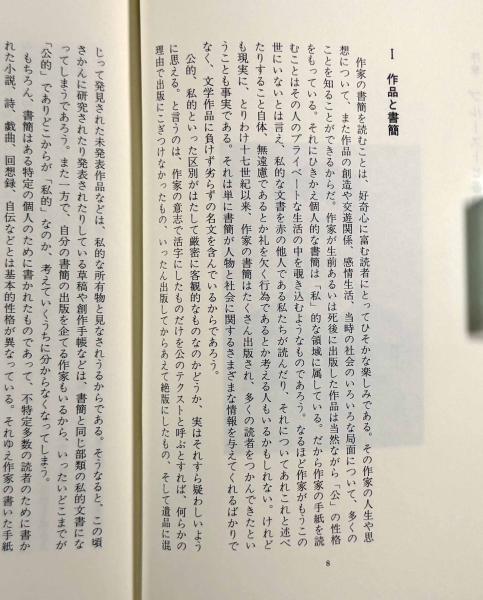 Ⅰ 作品と書簡
作家の書簡を読むことは、好奇心に富む読者にとってひそかな楽しみである。その作家の人生や思
想について、また作品の創造や交遊関係、感情生活、当時の社会のいろいろな局面について、多くの
ことを知ることができるからだ。作家が生前あるいは死後に出版した作品は当然ながら「公」の性格
をもっている。それにひきかえ個人的な書簡は「私」的な領域に属している。だから作家の手紙を読
むことはその人のプライベートな生活の中を覗き込むようなものであろう。なるほど作家がもうこの
世にいないとは言え、私的な文書を赤の他人である私たちが読んだり、それについてあれこれと述べ
たりすること自体、無遠慮であるとか礼を欠く行為であるとか考える人もいるかもしれない。けれど
も現実に、とりわけ十七世紀以来、作家の書簡はたくさん出版され、多くの読者をつかんできたとい
うことも事実である。それは単に書簡が人物と社会に関するさまざまな情報を与えてくれるばかりで
なく、文学作品に負けず劣らずの名文を含んでいるからであろう。
公的、私的といった区別がはたして厳密に客観的なものなのかどうか、実はそれすら疑わしいよう
に思える。と言うのは、作家の意志で活字にしたものだけを公のテクストと呼ぶとすれば、何らかの
理由で出版にこぎつけなかったもの、いったん出版してからあえて絶版にしたもの、そして遺品に混
8
じって発見された未発表作品などは、私的な所有物と見なされうるからである。そうなると、この頃
さかんに研究されたり発表されたりしている草稿や創作手帳などは、書簡と同じ部類の私的文書にな
ってしまうであろう。また一方で、自分の書簡の出版を企てる作家もいるから、いったいどこまでが
「公的」でありどこからが「私的」なのか、考えていくうちに分からなくなってしまう。
もちろん、書簡はある特定の個人のために書かれたものであって、不特定多数の読者のために書か
れた小説、詩、戯曲、回想録、自伝などとは基本的性格が異なっている。それゆえ作家の書いた手紙